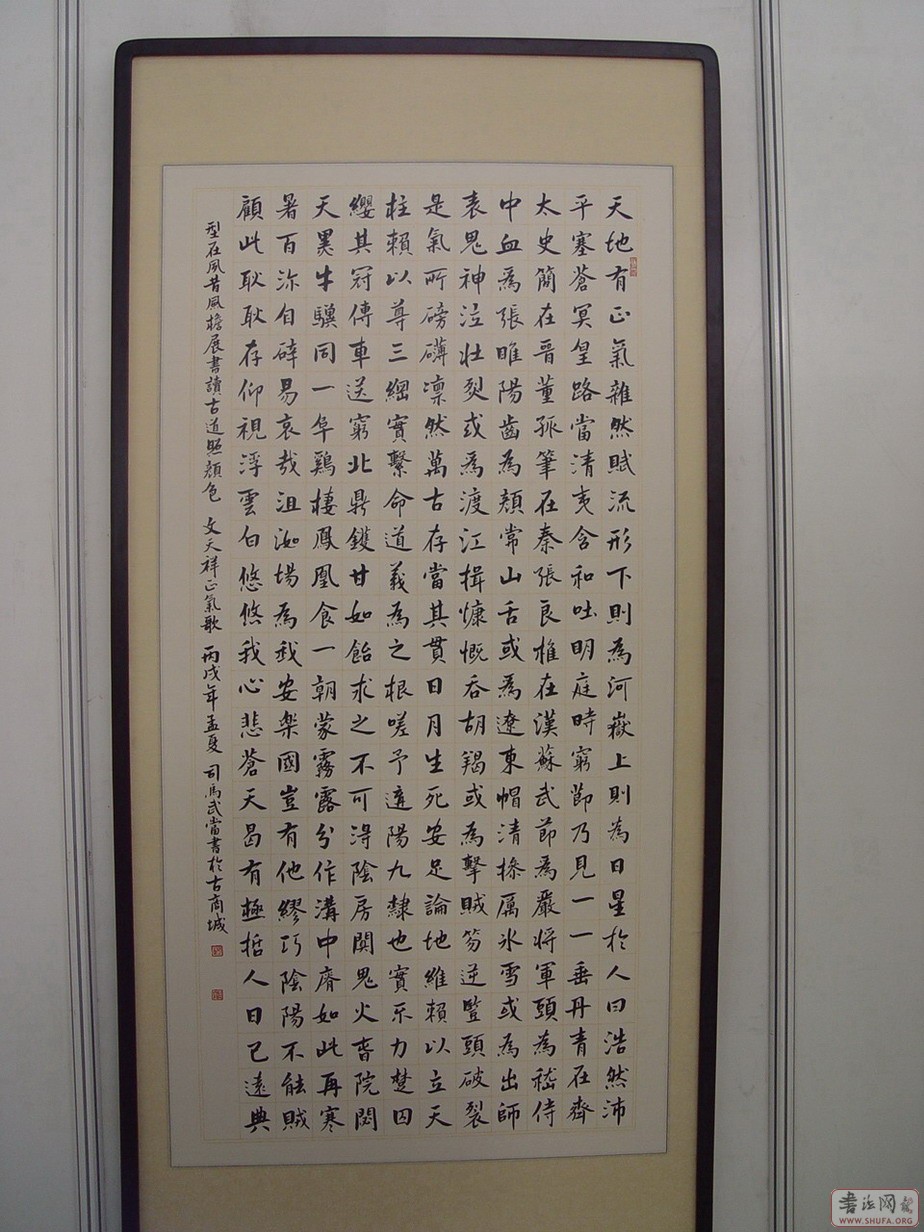 天地有正氣雜然賦流形下則為河嶽上則為日星於人曰浩然沛
平塞蒼冥皇路當清夷含和吐明庭時窮節乃見一一垂丹青在齊
太史簡在晉董孤筆在秦張良椎在漢蘇武節為嚴將軍頭為嵇侍
中血為張睢陽齒為顏常山舌或為遼東帽清操厲冰雪或為出師
表鬼神泣壯烈或為渡江楫慷慨吞胡羯或為擊賊笏逆豎頭破裂
是氣所磅礴凜然萬古存當其貫日月生死安足論地維賴以立天
柱賴以尊三綱實繫命道義為之根嗟予遘陽九隸也實不力楚囚
纓其冠傳車送窮北鼎鑊甘如飴求之不可得陰房闃鬼火春院閟
天黑牛驥同一皁鷄棲鳳凰食一朝蒙霧露分作溝中瘠如此再寒
暑百沴自辟易哀哉沮洳場為我安樂國豈有他繆巧陰陽不能賊
顧此耿耿存仰視浮雲白悠悠我心悲蒼天曷有極哲人日已遠典
型在夙昔風檐展書讀古道照顏色 文天祥正氣歌 丙戌年孟夏 司馬武當書於古商城
書法网
WWW.SHUFA.ORG